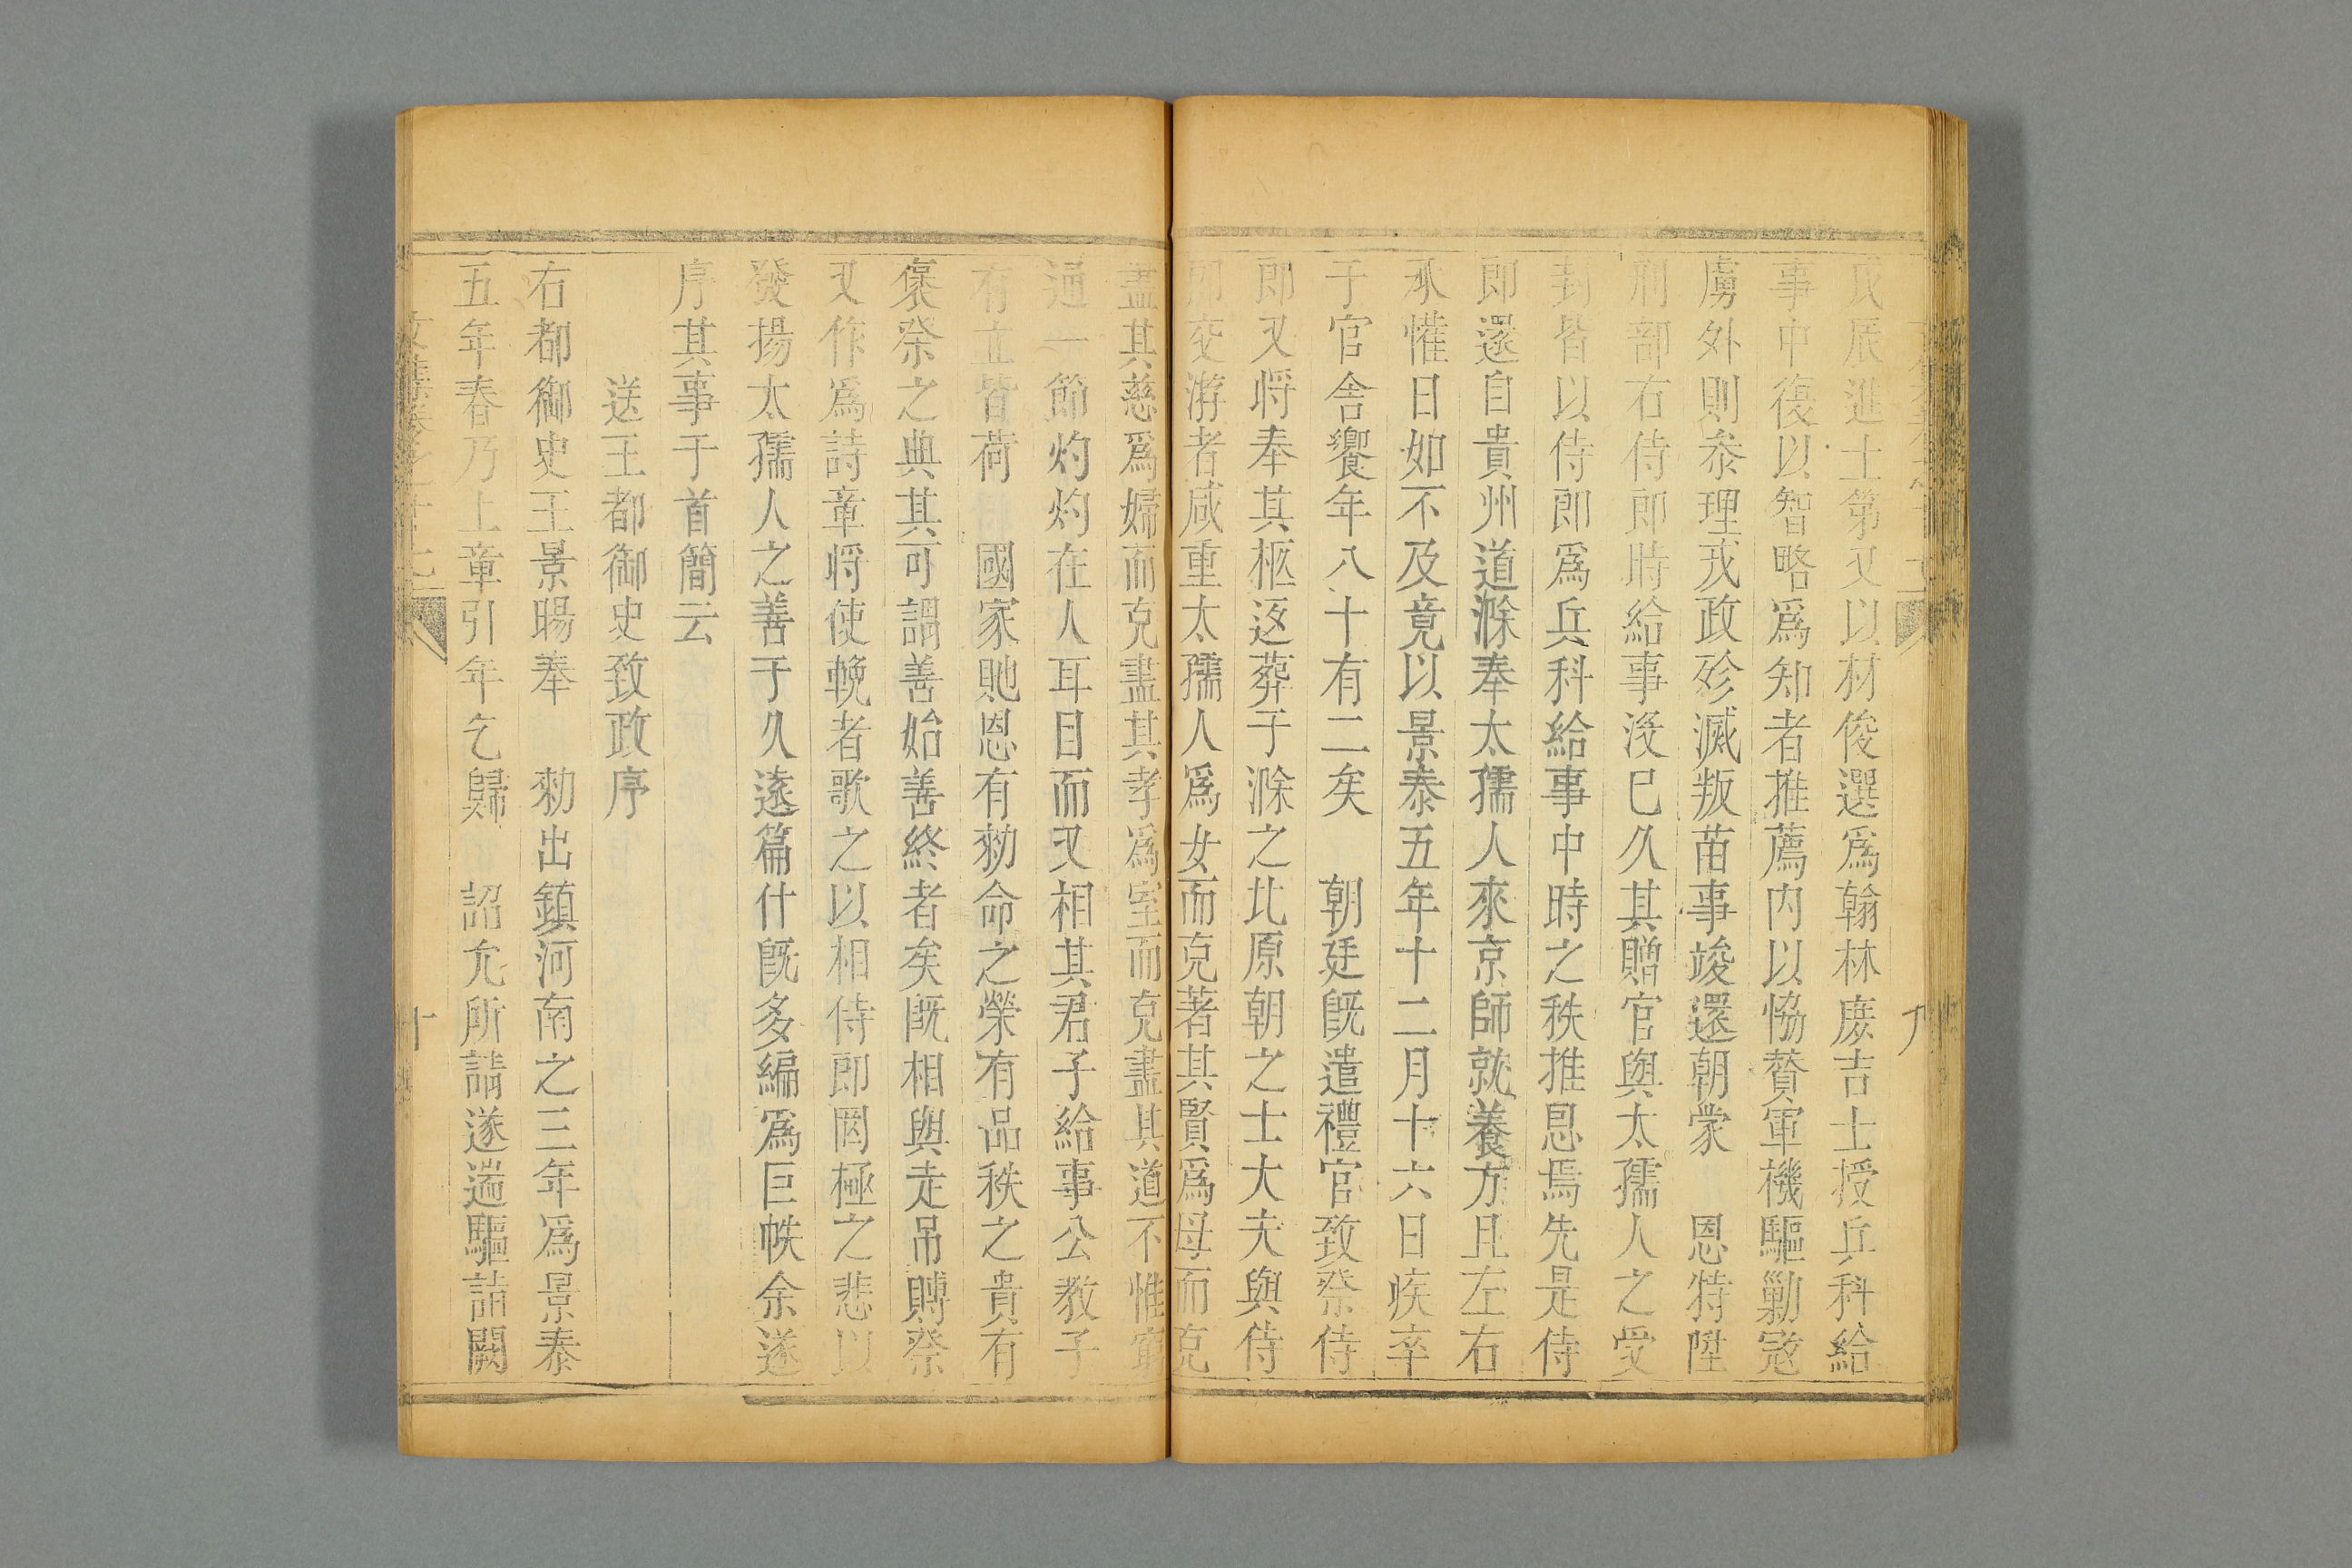 戌辰進士第又以材俊選爲翰林庶吉士授兵科給
事中復以智略爲知者推薦内以恊贊軍機驅勦宼
虜外則叅理戎政殄滅叛苗事竣還朝蒙　恩特陞
刑部右侍郎時給事没巳久其贈官與太孺人之受
封皆以侍郎爲兵科給事中時之秩推恩焉先是侍
郎還自貴州道滁奉太孺人來京師就養方且左右
承懽日如不及竟以景泰五年十二月十六日疾卒
于官舎饗年八十有二矣　朝廷旣遣禮官致祭侍
郎又将奉其柩返葬于滁之北原朝之士大夫與侍
郎交游者咸重太孺人爲女而克著其賢爲母而克
盡其慈爲婦而克盡其孝爲室而克盡其道不惟窮
通一節灼灼在人耳目而又相其君子給事公教子
有立皆荷　國家貤恩有勑命之榮有品秩之貴有
褒祭之典其可謂善始善終者矣旣相與走吊賻祭
又作爲詩章将使輓者歌之以相侍郎罔極之悲以
發揚太孺人之善于久遠篇什旣多編爲巨帙余遂
序其事于首簡云
送王都御史致政序
右都御史王景暘奉　勑出鎮河南之三年爲景泰
五年春乃上章引年乞歸　詔允所請遂遄驅詣闕
文集卷之十七
十